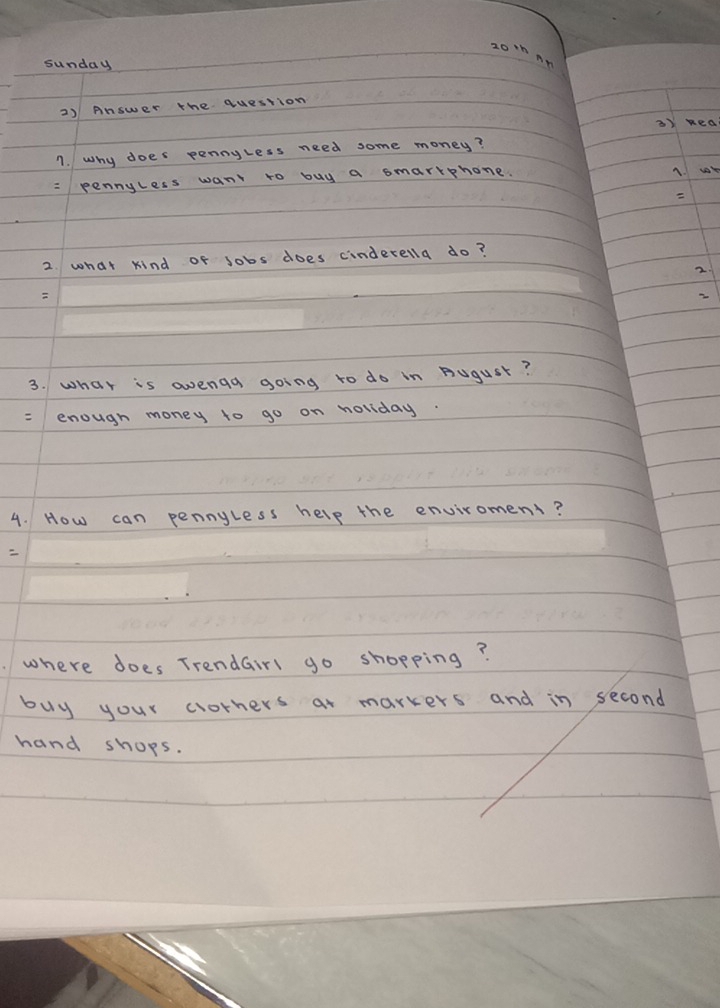 Sunday
20th
2) Answer the question
1. why does pennyLess need some money?
= pennyLess want to buy a smartphone.
2. what kind of Jobs does cinderella do?
=
3. what is owengg going to do in August?
= enough money to go on holiday.
4. How can pennyLess help the enviroment?
=
. where does TrendGirl go shopping?
buy your clothers at markets and in second
hand shops.
3)
1.
=
2.
=